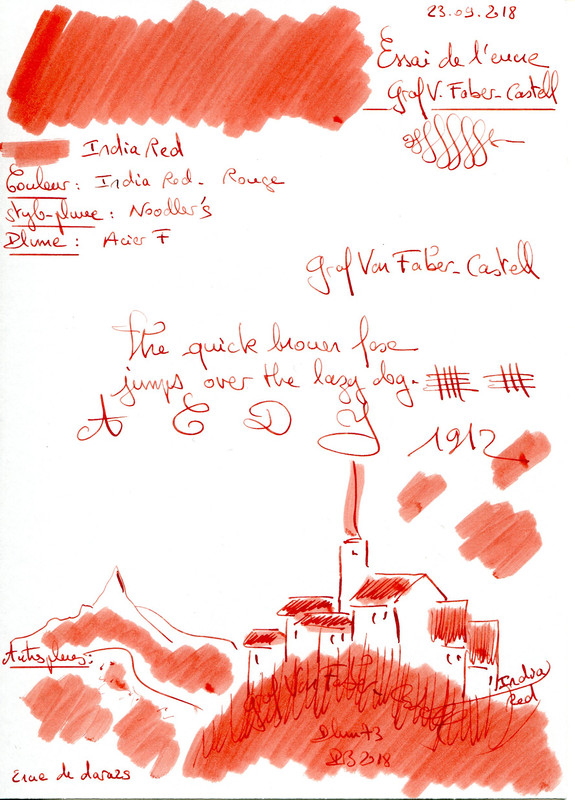 23.09.2018
Essai de l'encre
Graf V. Faber-Castell
India Red
Couleur : India Red - Rouge
stylo-plume : Noodler's
Plume : Acier F
Graf Von Faber-Castell
The quick brown fox
jumps over the lazy dog.
A E D Y
1912
Autres plumes :
India
Red
Graf Von Faber
2018
Encre de